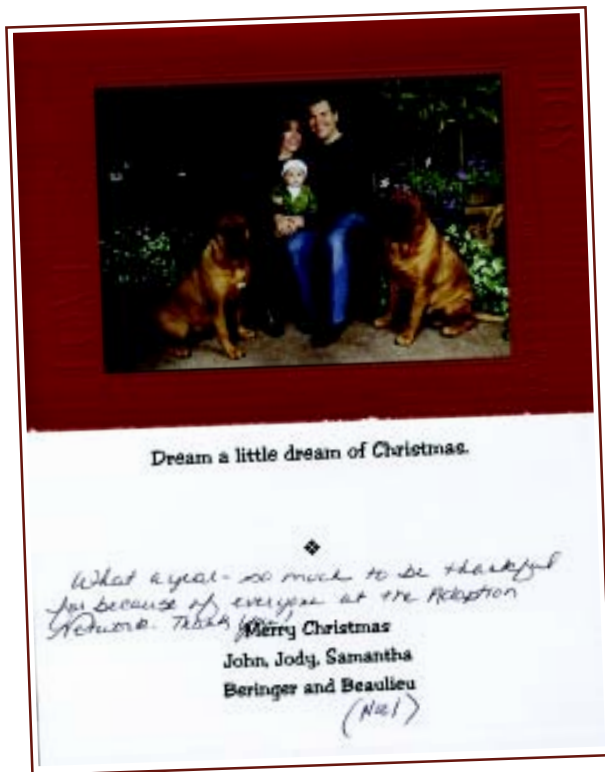 Dream a little dream of Christmas.
What a year - so much to be thankful
for because of everyone at the Adoption
Network. Thank you,
Merry Christmas
John, Jody, Samantha
Beringer and Beaulieu